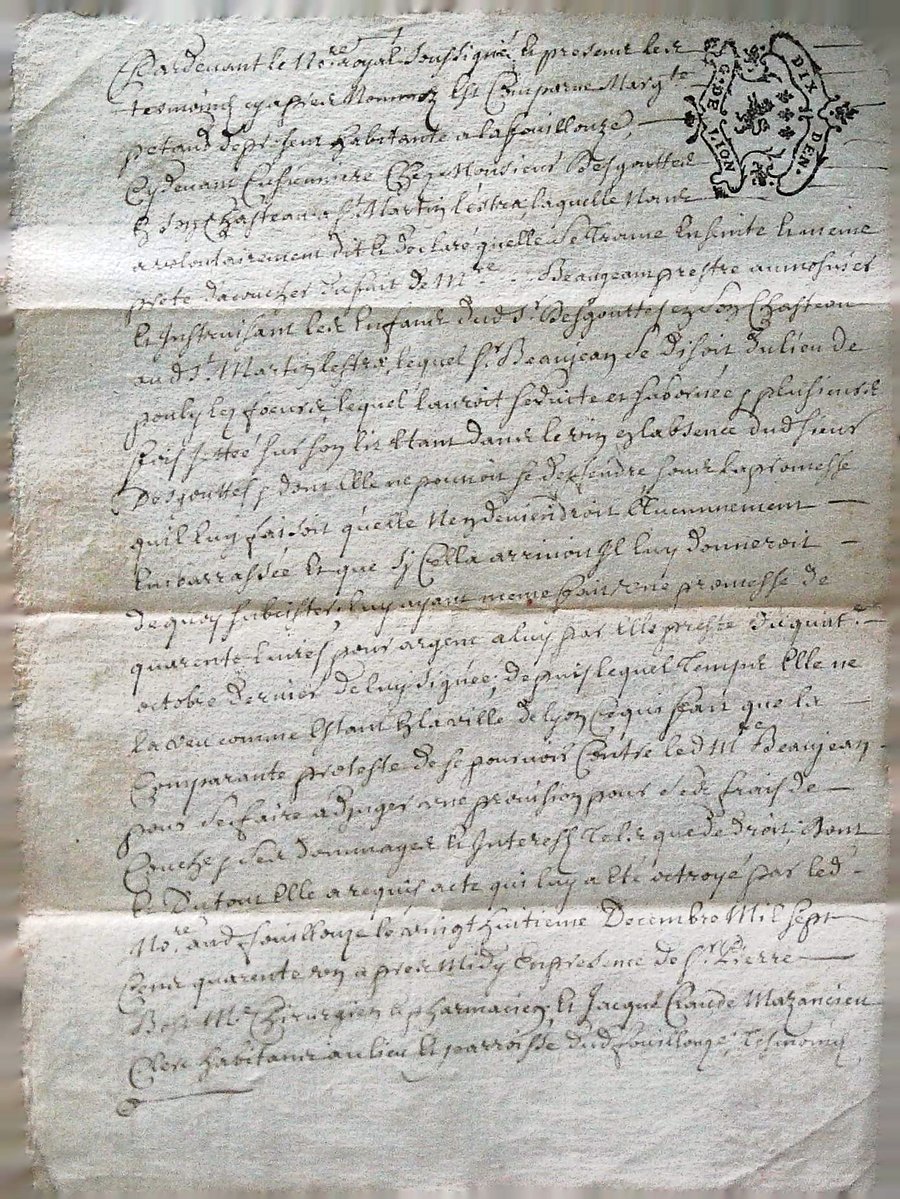 Pardevant le No.re royal soussigné, et presents les
tesmoins cy apres Nommez Est Comparue Marg.te
petaud de present habitante a la fouillouze,
Cy devant Cuisiniere Chez Monsieur Desgouttes
En son Chasteau a St. Martin lestra, laquelle Nous
a volontairement dit et declaré quelle se trouve Enceinte et meme
prete daccoucher du fait de M.re ... Beaugean prestre aumosnier
Et Instruisant les Enfans dud Sr. Desgouttes en son Chasteau
aud St. Martin lestra, lequel Sr. Beaujean se disoit du lieu de
pouly les foeurs, lequel lauroit seduite et subornée, plusieurs
fois jettée sur son lit Etant dans le vin en labsence dud sieur
Desgouttes, dont Elle ne pouvoit se deffendre, sous la promesse
quil luy faisoit quelle Nen deviendroit Aucunnement
Embarrassée Et que sy Cella arrivoit Il luy donneroit
de quoy subsister, luy ayant meme fait une promesse de
quarente livres pour argent a luy par Elle presté du quat.e
octobre dernier de luy signée, depuis lequel temps Elle ne
la veu comme Estant En la ville de lyon, Ce qui fait que la
Comparante proteste de se pourvoir Contre led M.re Beaujean
pour se faire adjuger une provision pour ses frais de
Couche, ses dommages Et Interests tels que de droit; Dont
Et Du tout Elle a requis acte qui luy a Eté octroyé par led
No.re aud fouillouze le vingt huitieme Decembre Mil sept
Cent quarente un apres Midy En presence de Sr. Pierre
Bost M.e Chirurgien Et pharmacien, Et Jacque Claude Mazancieu
Clerc habitants au lieu Et parroisse dud fouillouze, tesmoins
G. DE LION
DIX DEN.